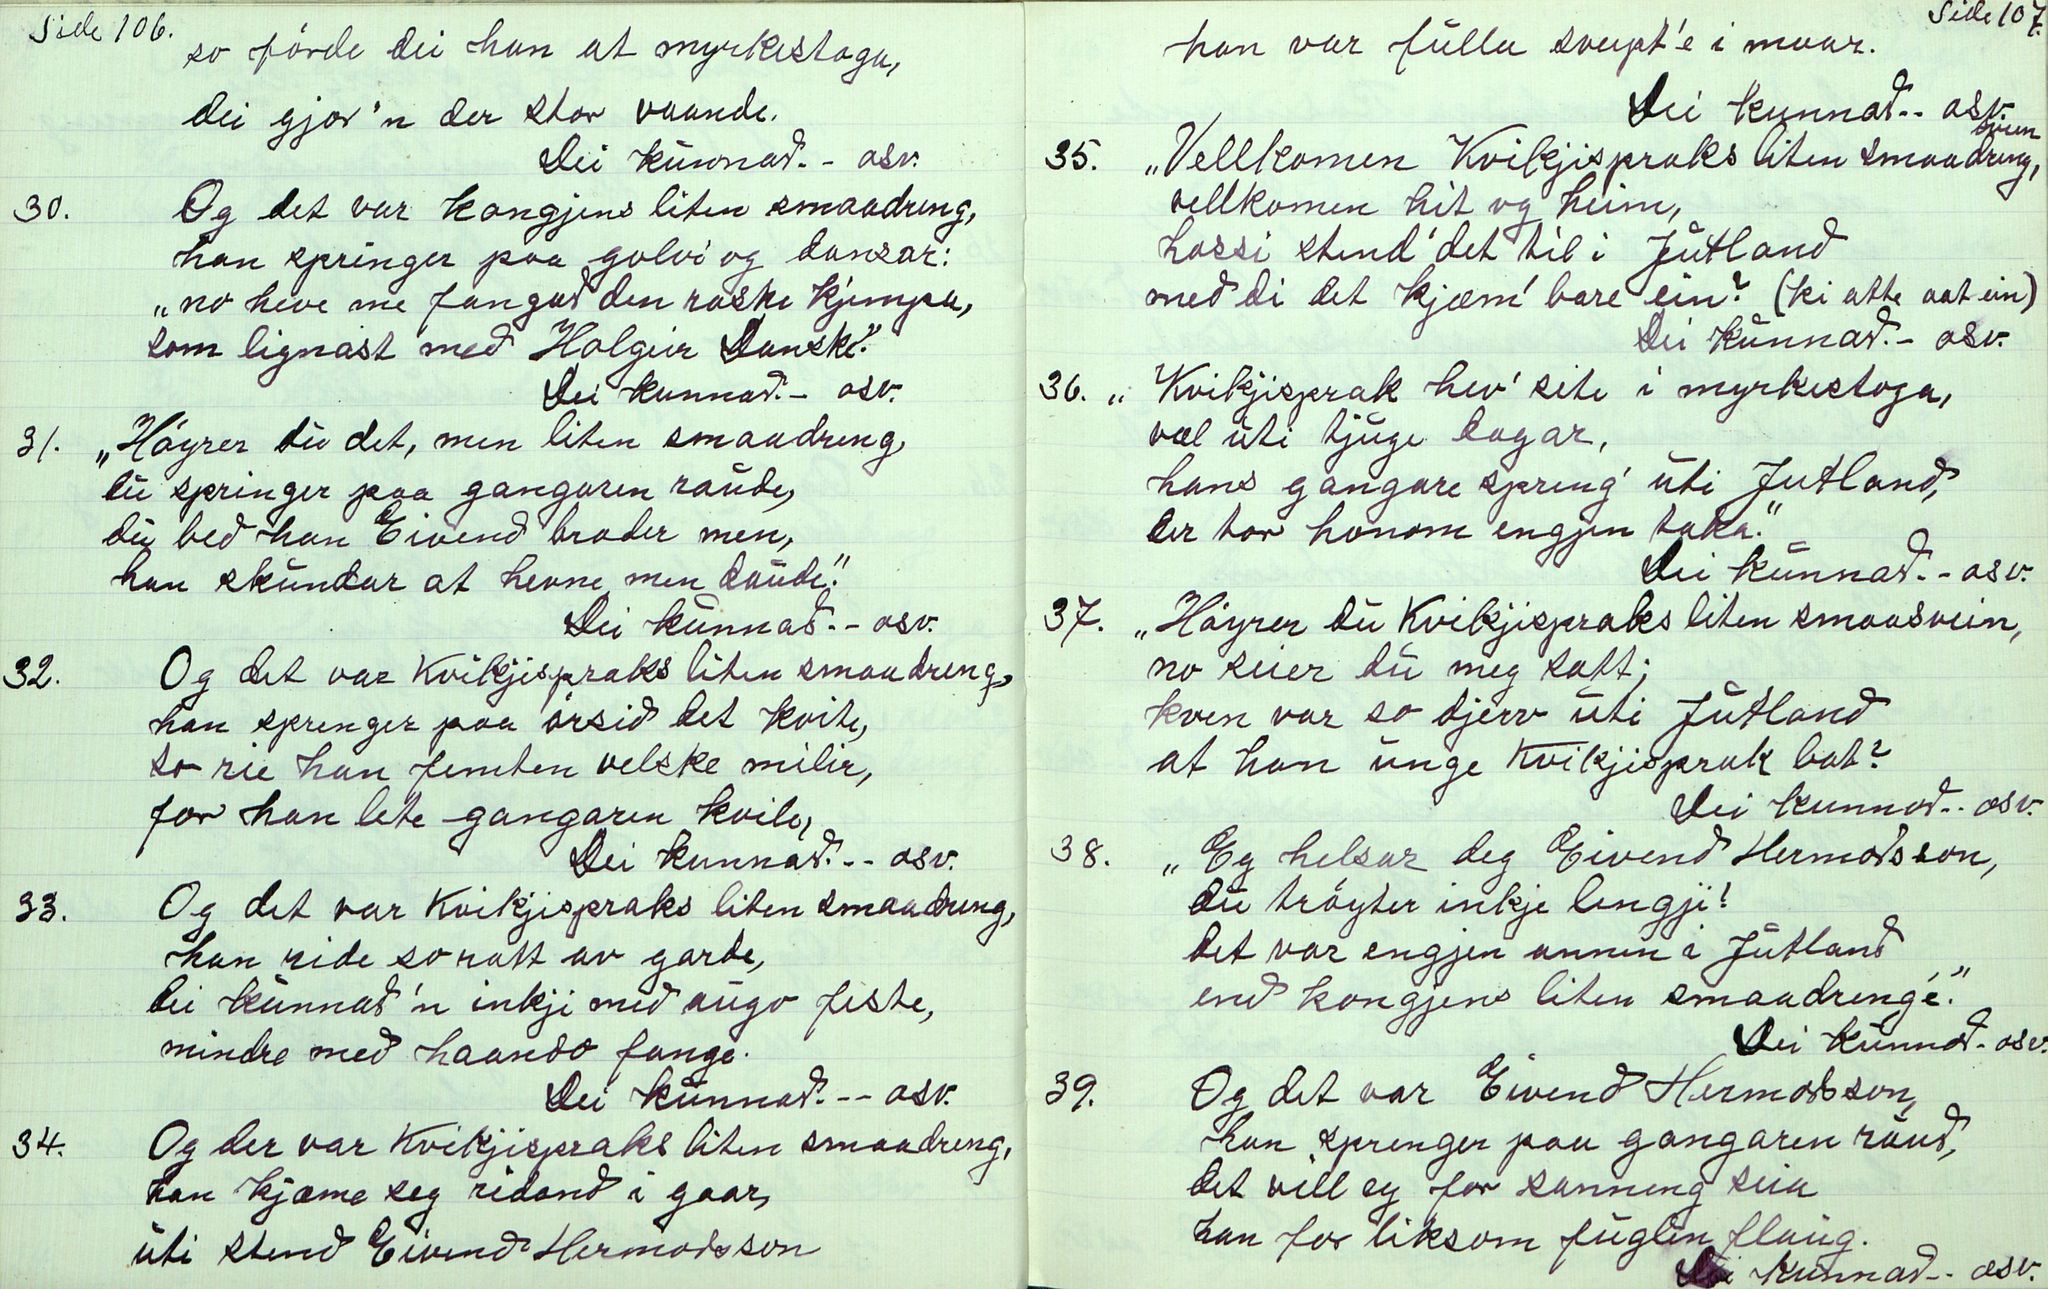 Side 106.
so förde dei han at myrkestoga,
dei gjor'n der stor vaande.
Dei kunnað.- osv.
30. Og det var kongjens liten smaadreng,
han springer paa golvi og dansar:
„no heve me fangað den raske kjempa,
som lignast með Holgeir Danske."
Dei kunnað.- osv.
31. „Höyrer du det, men liten smaadreng,
du springer paa gangaren raude,
du beð han Eivend broder men,
han skundar at hevne men daude."
Dei kunnað.- osv.
32. Og det var Kvikjispraks liten smaadreng,
han sprenger paa örsið det kvite,
so rie han femten velske milir,
for han lete gangaren kvile,
Dei kunnað.-- osv.
33. Og det var Kvikjispraks liten smaadreng,
han ride so ratt av garde,
dei kunnað'n inkji með augo feste,
mindre með haando fange.
Dei kunnað.-- osv.
34. Og der var Kvikjispraks liten smaadreng,
han kjæme seg ridand i gaar,
uti stend Eivend Hermodsson
Side 107.
han var fulla sveipt'e i maar.
Dei kunnað.- osv.
svein
35. „Vellkomen Kvikjispraks liten smaadreng,
vellkomen hit og heim,
hossi stend' det til i Jutland
með di det kjæm' bare ein? (ki atte aat ein)
Dei kunnað.- osv.
36. „Kvikjisprak hev' site i myrkestoga,
væl uti tjuge dagar,
hans gangare spreng' uti Jutland,
der tor honom engjen taka."
Dei kunnað.- osv.
37. „Höyrer du Kvikjispraks liten smaasvein,
no seier du meg satt;
kven var so djerv uti Jutland
at han unge Kvikjisprak bat?
Dei kunnað.- osv.
38. „Eg helsar deg Eivend Hermodsson,
du tröyter inkje lengji!
det var engjen annen i Jutland
end kongjens liten smaadreng'e."
Dei kunnað.- osv.
39. Og det var Eivend Hermodsson,
han sprenger paa gangaren rauð,
det vill eg for sanneng seia
han for liksom fuglen flaug.
Dei kunnað.- osv.